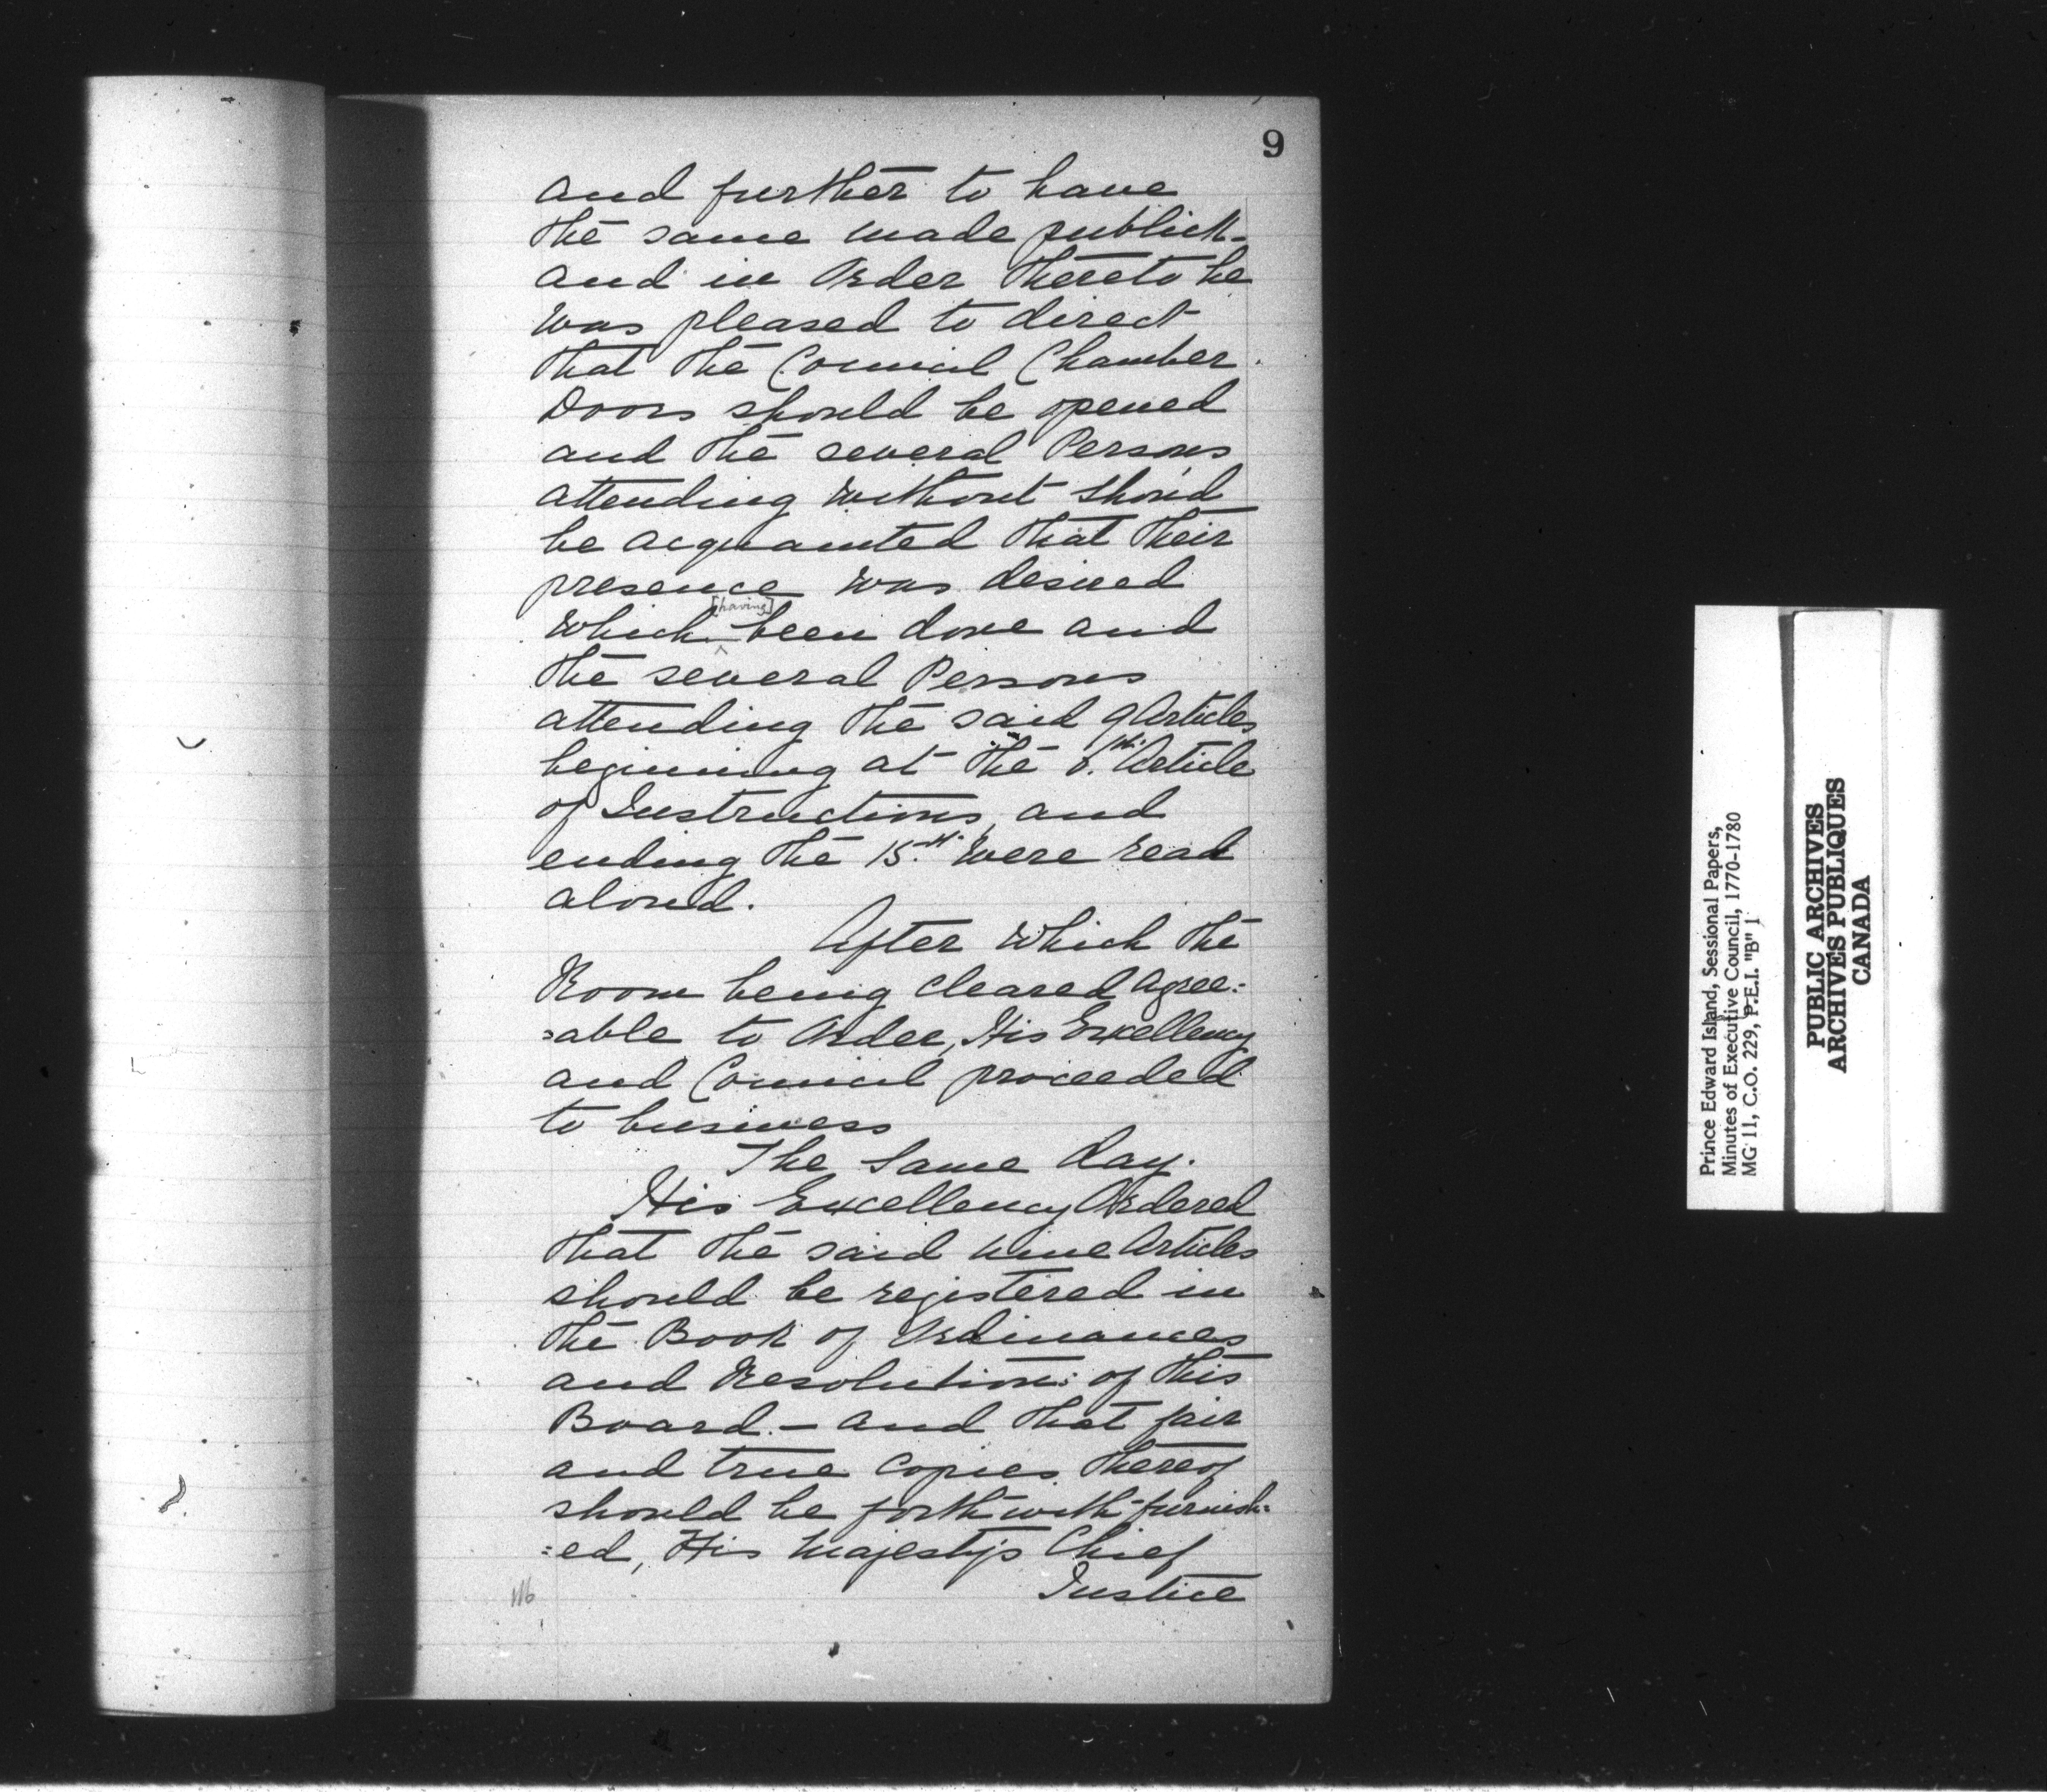 9
and further to have
the same made publick-
and in Order thereto he
was pleased to direct
that the Council Chamber
Doors should be opened
and the several Persons
attending without shou'd
be acquainted that their
presence was desired
[having]
which been done and
the several Persons
attending the said 9 Articles
beginning at the th. Article
of Instructions, and
ending the 15th. were read
aloud.
After which the
Room being cleared agree:
:able to Order, His Excellency
and Council proceeded
to business
The Same day.
His Excellency Ordered
that the said nine Articles
should be registered in
the Book of Ordinances
and Resolution: of this
Board - and that fair
and true Copies thereof
should be forthwith furnish:
:ed, His Majesty's Chief
Justice
Prince Edward Island, Sessional Papers,
Minutes of Executive Council, 1770-1780
MG 11, C.O. 229, P.E.I. "B" 1
PUBLIC ARCHIVES
ARCHIVES PUBLIQUES
CANADA